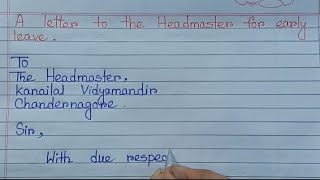 A letter to the Headmaster for early
leave.
To
The Headmaster.
Kanailal Vidyamandir
Chandernagore.
Sir,
With due respec